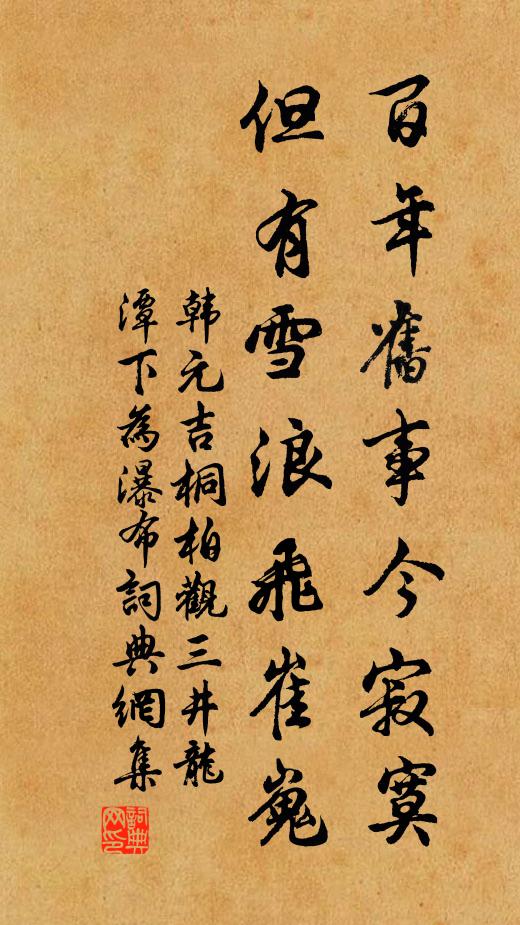 百年舊事今寂寞
但有雪浪飛崔嵬
韩元吉桐柏觀三井龍
潭下為瀑布詞典網集
詞典
网印